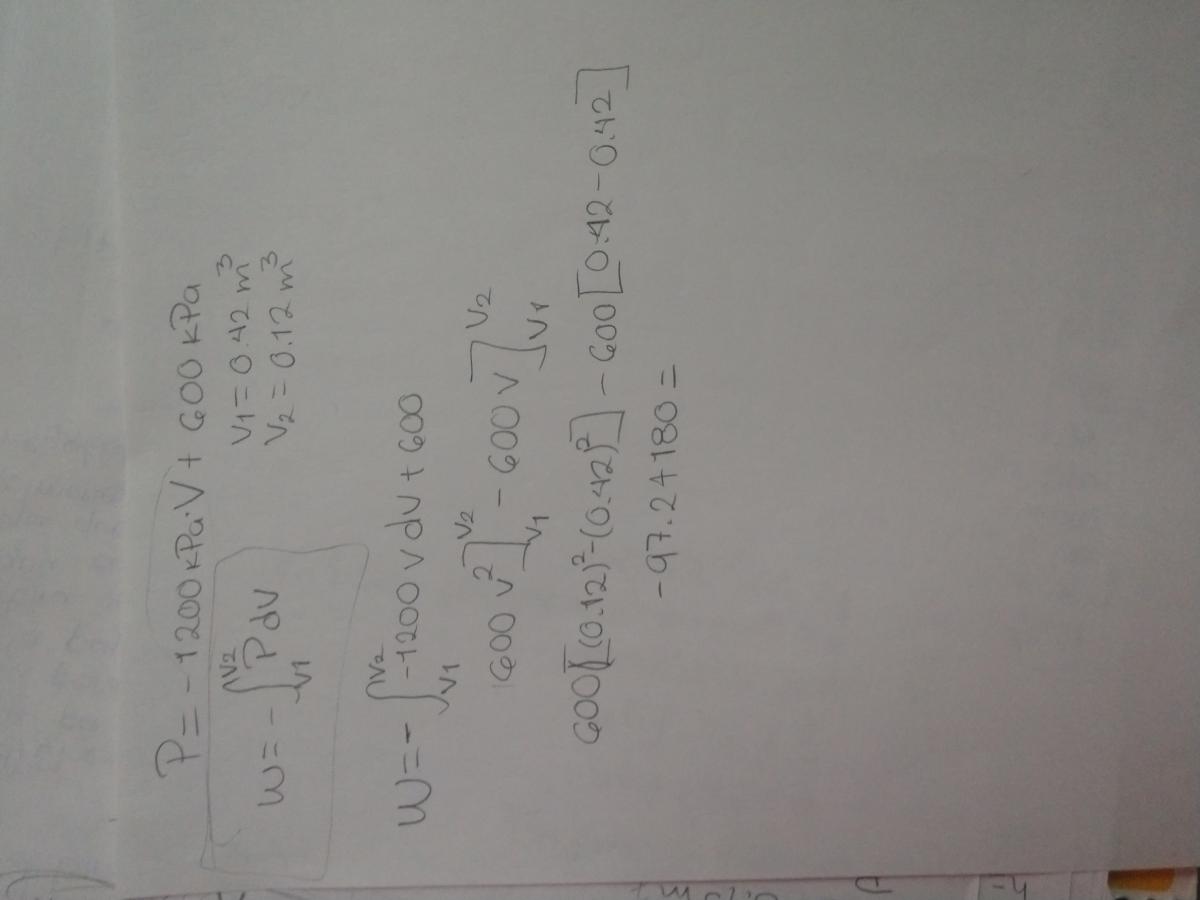 P = -1200 kPa·V + 600 kPa
W = - ∫V1^V2 P dV
V1 = 0.42 m³
V2 = 0.12 m³
W = - ∫V1^V2 -1200 V dV + 600
600 V²]V1^V2 - 600 V]V1^V2
600[(0.12)²-(0.42)²] - 600[0.42-0.42]
-97.2+180=